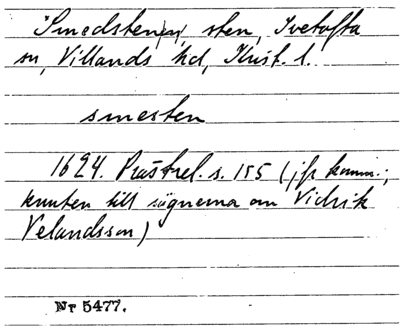 "Smedsten, sten, Ivetofta
sn, Villands hd, Krist. l.
smesten
1624. Prästrel. s. 155 (jfr komm.;
knuten till sägnerna om Vidrik
Velandsson)
Nr 5477.